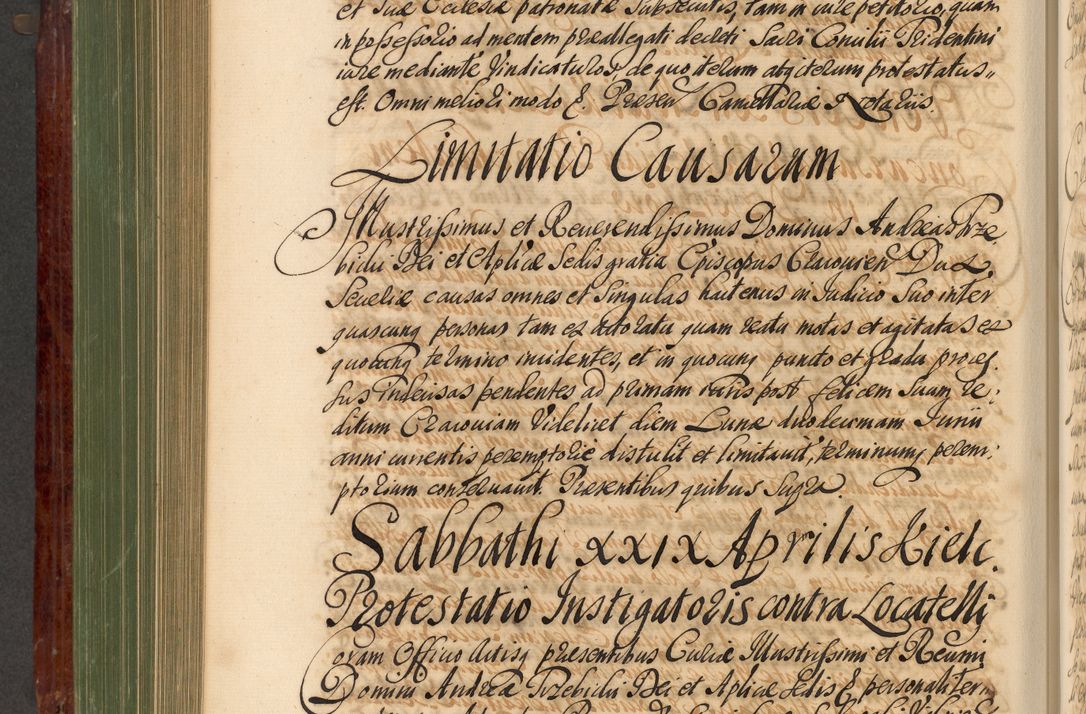 et suæ Ecclesiæ patronatæ subsecutis, tam in iure petitorio, quam
in possessorio ad mentem præallegati decreti Sacri Concilii Tridentini
iure mediante vindicaturos, de quo iterum atq iterum protestatus
est. Omni meliori modo &. Præsen Cancellariæ Notariis.
Limitatio Causarum
Illustrissimus et Reverendissimus Dominus Andreas Trze
bicki Dei et Aplicæ Sedis gratia Episcopus Cracovien Dux
Severiæ causas omnes et singulas hactenus in Judicio suo inter
quascunq personas tam ex actoratu quam reatu motas et agitatas ex
quocunq termino incidentes, et in quocunq puncto et gradu proces
sus indecisas pendentes ad primam iuris post felicem suam re,
ditum Cracoviam videlicet diem Lunæ duodecimam Junii
anni currentis peremptorie distulit et limitavit, terminumq perem,
ptorium conservavit. Præsentibus quibus supra.
Sabbathi XXIX Aprilis Kielc.
Protestatio Instigatoris contra Locatellj
Coram Officio actisq præsentibus Curiæ Illustrissimi et Reumi
Domini Andreæ Trzebicki Dei et Aplicæ Sedis & personaliter